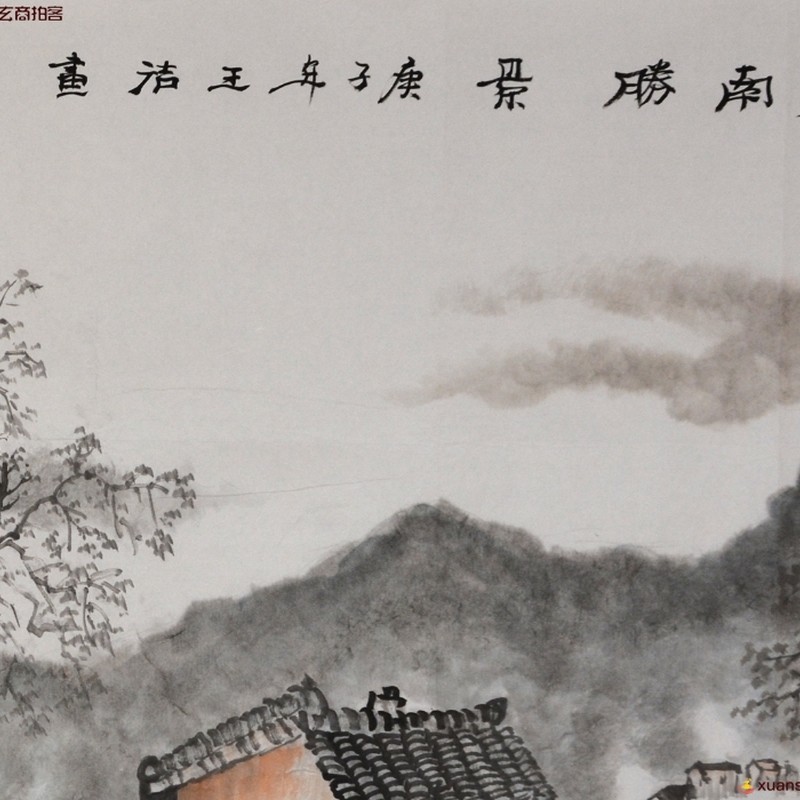 玄商拍客
南勝景庚子年王洁畫
xuans